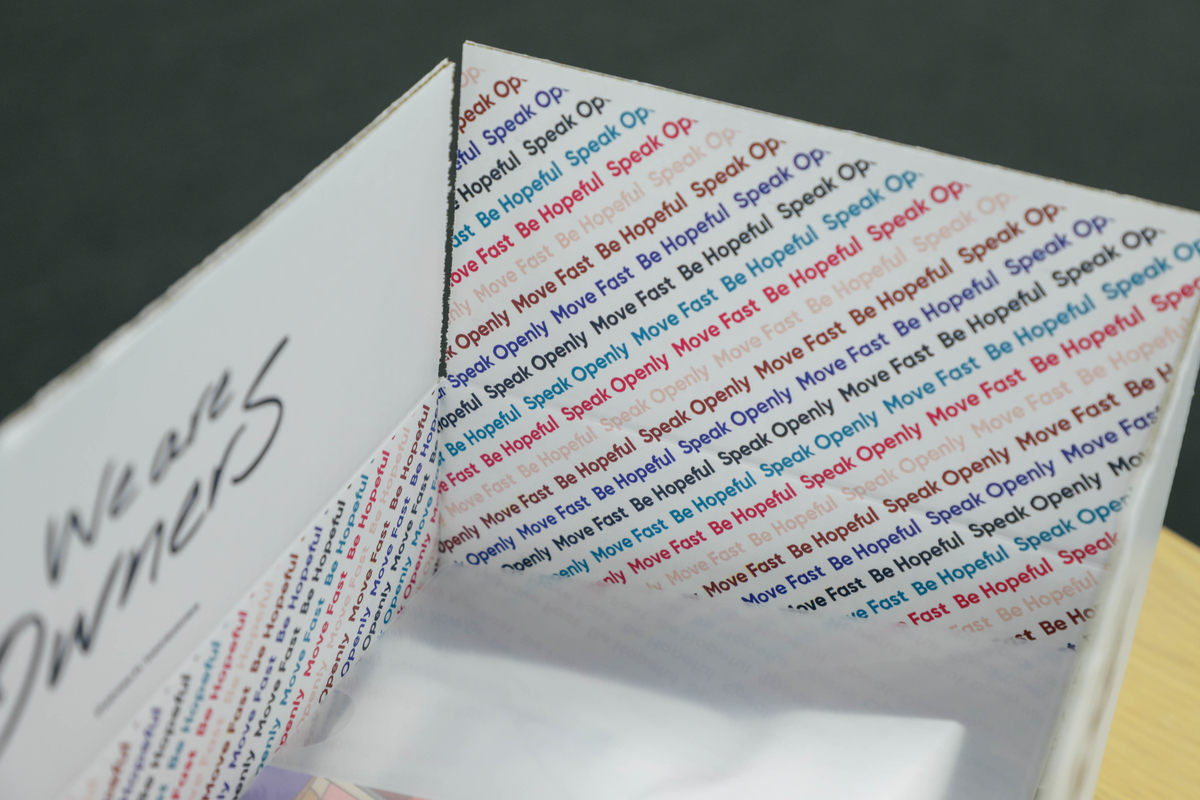 We are
Owners
Op
peak Op
ful Speak Op
Hopeful Speak Op
ast Be Hopeful Speak Op
ove Fast Be Hopeful Speak Op
nly Move Fast Be Hopeful Speak Op
k Openly Move Fast Be Hopeful Speak Op
Speak Openly Move Fast Be Hopeful Speak Op
opeful Speak Openly Move Fast Be Hopeful Speak Op
Be Hopeful Speak Openly Move Fast Be Hopeful Speak Op
e Fast Be Hopeful Speak Openly Move Fast Be Hopeful Speak Op
Move Fast Be Hopeful Speak Openly Move Fast Be Hopeful Speak Op
Openly Move Fast Be Hopeful Speak Openly Move Fast Be Hopeful Speak Op
Openly Move Fast Be Hopeful Speak Openly Move Fast Be Hopeful Speak Op
Openly Move Fast Be Hopeful Speak Openly Move Fast Be Hopeful Speak Op
enly Move Fast Be Hopeful Speak Openly Move Fast Be Hopeful Speak O
nly Move Fast Be Hopeful Speak Openly Move Fast Be Hopeful Spe
Move Fast Be Hopeful Speak Openly Move Fast Be Hopeful
Move Fast Be Hopeful Speak Openly Move Fast Be H
Move Fast Be Hopeful Speak Openly Move Fas
Fast Be Hopeful Speak Openly Mo
Fast Be Hopeful Speak Open
Fast Be Hopeful Speak
Be Hopeful
Be Ho
Hopeful
Be Hopeful
Be Hopeful
Fast Be Hopeful
Fast Be Hopeful
Move Fast Be Hopeful
Move Fast Be Hopeful
enly Move Fast Be Hopeful
Openly Move Fast Be Hopeful
Openly Move Fast Be Hopeful
Openly Move Fast Be Hopeful
Openly Move Fast Be Hopeful
Openly Move
Openly